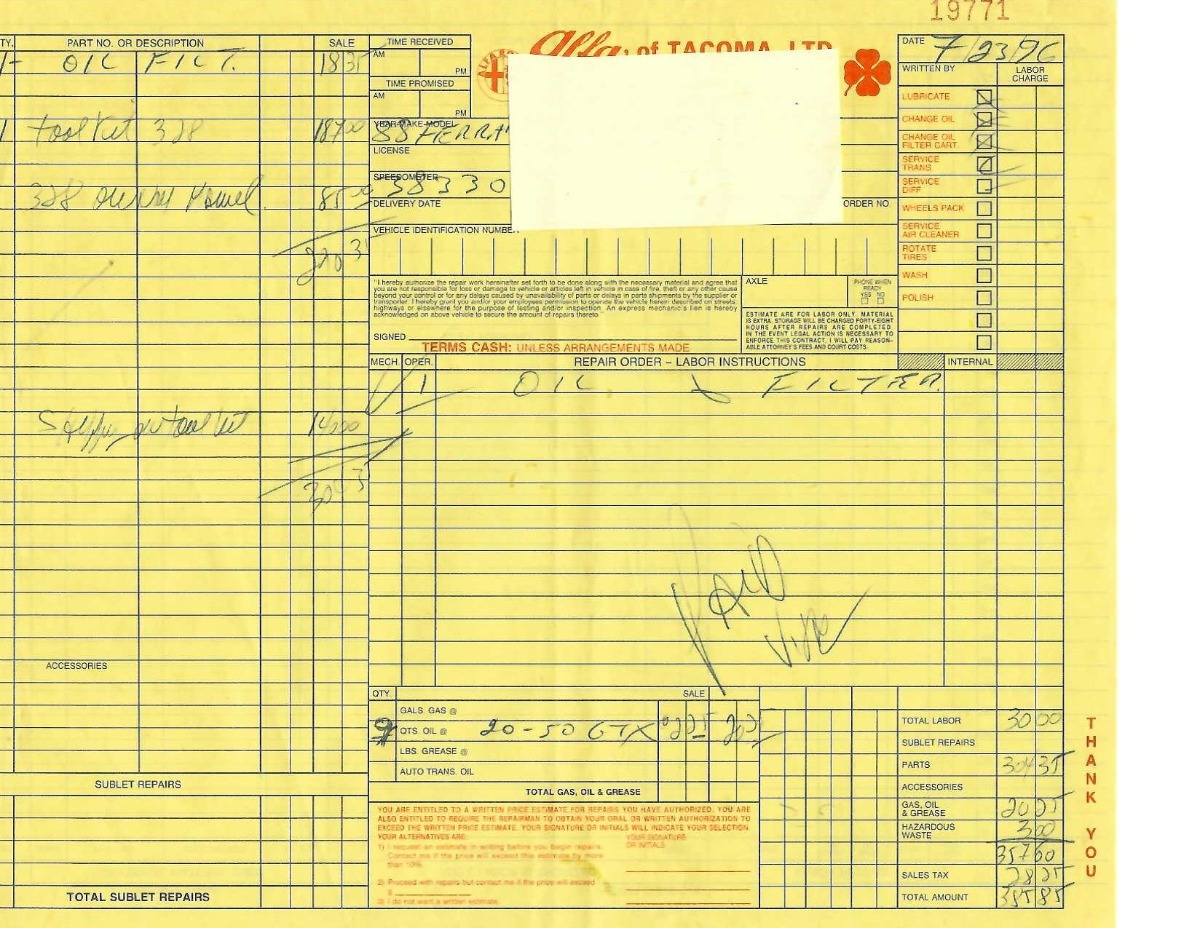 19771
TY. PART NO. OR DESCRIPTION SALE
1- OIL FILT. 18 35
1 toolkit 328 187 00
328 85 00
220 35
toolkit
304 35
ACCESSORIES
SUBLET REPAIRS
TOTAL SUBLET REPAIRS
TIME RECEIVED
AM
PM
TIME PROMISED
AM
PM
Alfa of TACOMA, LTD
YEAR-MAKE-MODEL
88 FERRA
LICENSE
SPEEDOMETER
38330
DELIVERY DATE
ORDER NO.
VEHICLE IDENTIFICATION NUMBER
"I hereby authorize the repair work hereinafter set forth to be done along with the necessary material and agree that
you are not responsible for loss or damage to vehicle or articles left in vehicle in case of fire, theft or any other cause
beyond your control or for any delays caused by unavailability of parts or delays in parts shipments by the supplier or
transporter. I hereby grant you and/or your employees permission to operate the vehicle herein described on streets,
highways or elsewhere for the purpose of testing and/or inspection. An express mechanic's lien is hereby
acknowledged on above vehicle to secure the amount of repairs thereto."
SIGNED
TERMS CASH: UNLESS ARRANGEMENTS MADE
AXLE
PHONE WHEN
READY
YES NO
ESTIMATE ARE FOR LABOR ONLY. MATERIAL
IS EXTRA. STORAGE WILL BE CHARGED FORTY-EIGHT
HOURS AFTER REPAIRS ARE COMPLETED.
IN THE EVENT LEGAL ACTION IS NECESSARY TO
ENFORCE THIS CONTRACT, I WILL PAY REASON-
ABLE ATTORNEY'S FEES AND COURT COSTS.
DATE 7/23/96
WRITTEN BY LABOR
CHARGE
LUBRICATE
CHANGE OIL
CHANGE OIL
FILTER CART.
SERVICE
TRANS.
SERVICE
DIFF
WHEELS PACK
SERVICE
AIR CLEANER
ROTATE
TIRES
WASH
POLISH
MECH. OPER. REPAIR ORDER – LABOR INSTRUCTIONS INTERNAL
1 OIL & FILTER
PAID
QTY. SALE
GALS. GAS @
9 QTS. OIL @ 20-50 GTX 2 25 20 25
LBS. GREASE @
AUTO TRANS. OIL
TOTAL GAS, OIL & GREASE
YOU ARE ENTITLED TO A WRITTEN PRICE ESTIMATE FOR REPAIRS YOU HAVE AUTHORIZED. YOU ARE
ALSO ENTITLED TO REQUIRE THE REPAIRMAN TO OBTAIN YOUR ORAL OR WRITTEN AUTHORIZATION TO
EXCEED THE WRITTEN PRICE ESTIMATE. YOUR SIGNATURE OR INITIALS WILL INDICATE YOUR SELECTION.
YOUR ALTERNATIVES ARE:
YOUR SIGNATURE
OR INITIALS
1) I request an estimate in writing before you begin repairs.
Contact me if the price will exceed this estimate by more
than 10%.
2) Proceed with repairs but contact me if the price will exceed
$
3) I do not want a written estimate.
TOTAL LABOR 30 00
SUBLET REPAIRS
PARTS 304 35
ACCESSORIES
GAS, OIL
& GREASE 20 25
HAZARDOUS
WASTE 3 00
357 60
SALES TAX 28 25
TOTAL AMOUNT 385 85
THANK YOU